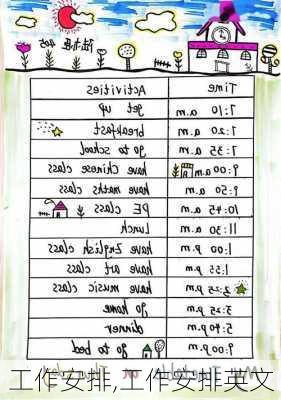 405
Time Activities
7:10 a.m get up
7:20 a.m breakfast
7:35 a.m go to school
9:00 a.m have Chinese class
9:50 a.m have maths class
10:45 a.m PE class
11:30 a.m Lunch
1:00 p.m have English class
1:55 p.m have art class
p.m have music class
p.m go home
5:40 p.m dinner
9:00 p.m go to bed
My Timetable on
工作安排,工作安排英文